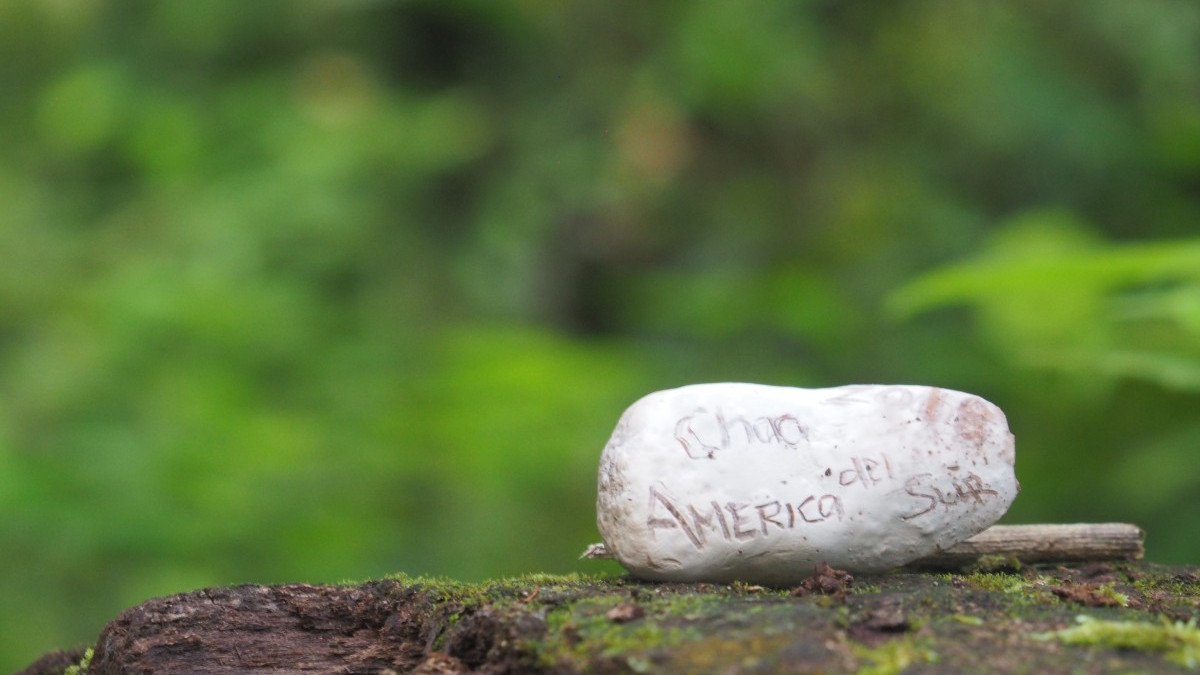 Chao
America del Sur